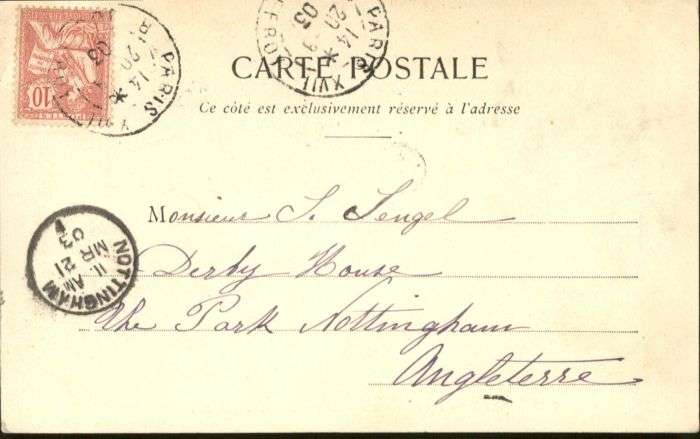 10
PARIS XVII
14
20
03
PARIS XVII
14
20
03
CARTE POSTALE
Ce côté est exclusivement réservé à l'adresse
Monsieur S. Sengel
Derby House
The Park Nottingham
Angleterre
NOTTINGHAM
11. AM
MR 21
03